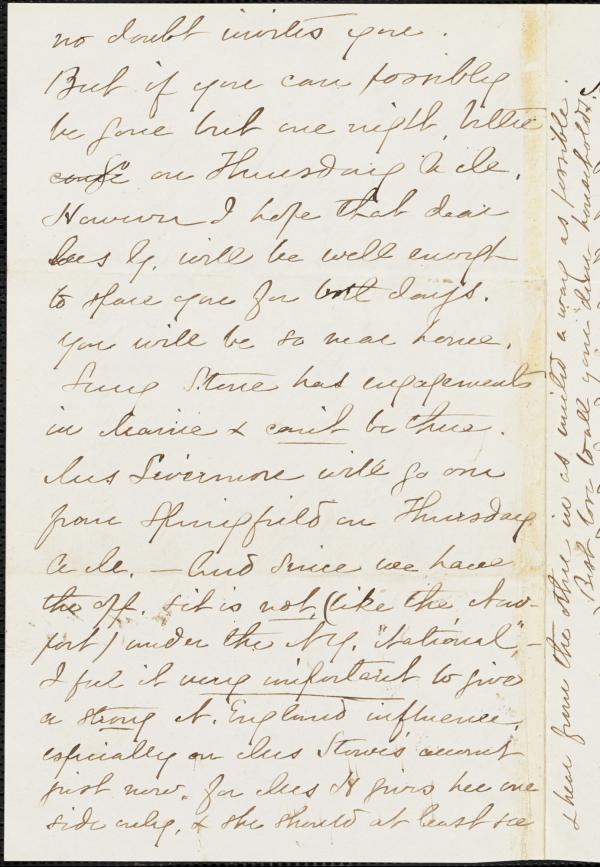 no doubt invites you.
But if you can possibly
be gone but one night,
on Thursday A.M.
However I hope that dear
Mrs G. will be well enough
to spare you for both days.
You will be so near home.
Lucy Stone has engagements
in Maine & can't be there.
Mrs Livermore will go on
from Springfield on Thursday
A.M. — And since we have
the off. & it is not, (like the New-
port) under the N.Y. "National" –
I feel it very important to give
a strong N. England influence
especially on Mrs Stowe's account
just now. for Mrs H gives her one
side only, & she should at least see
& hear from the other in as united a way as possible.
Best love to all your dear households.